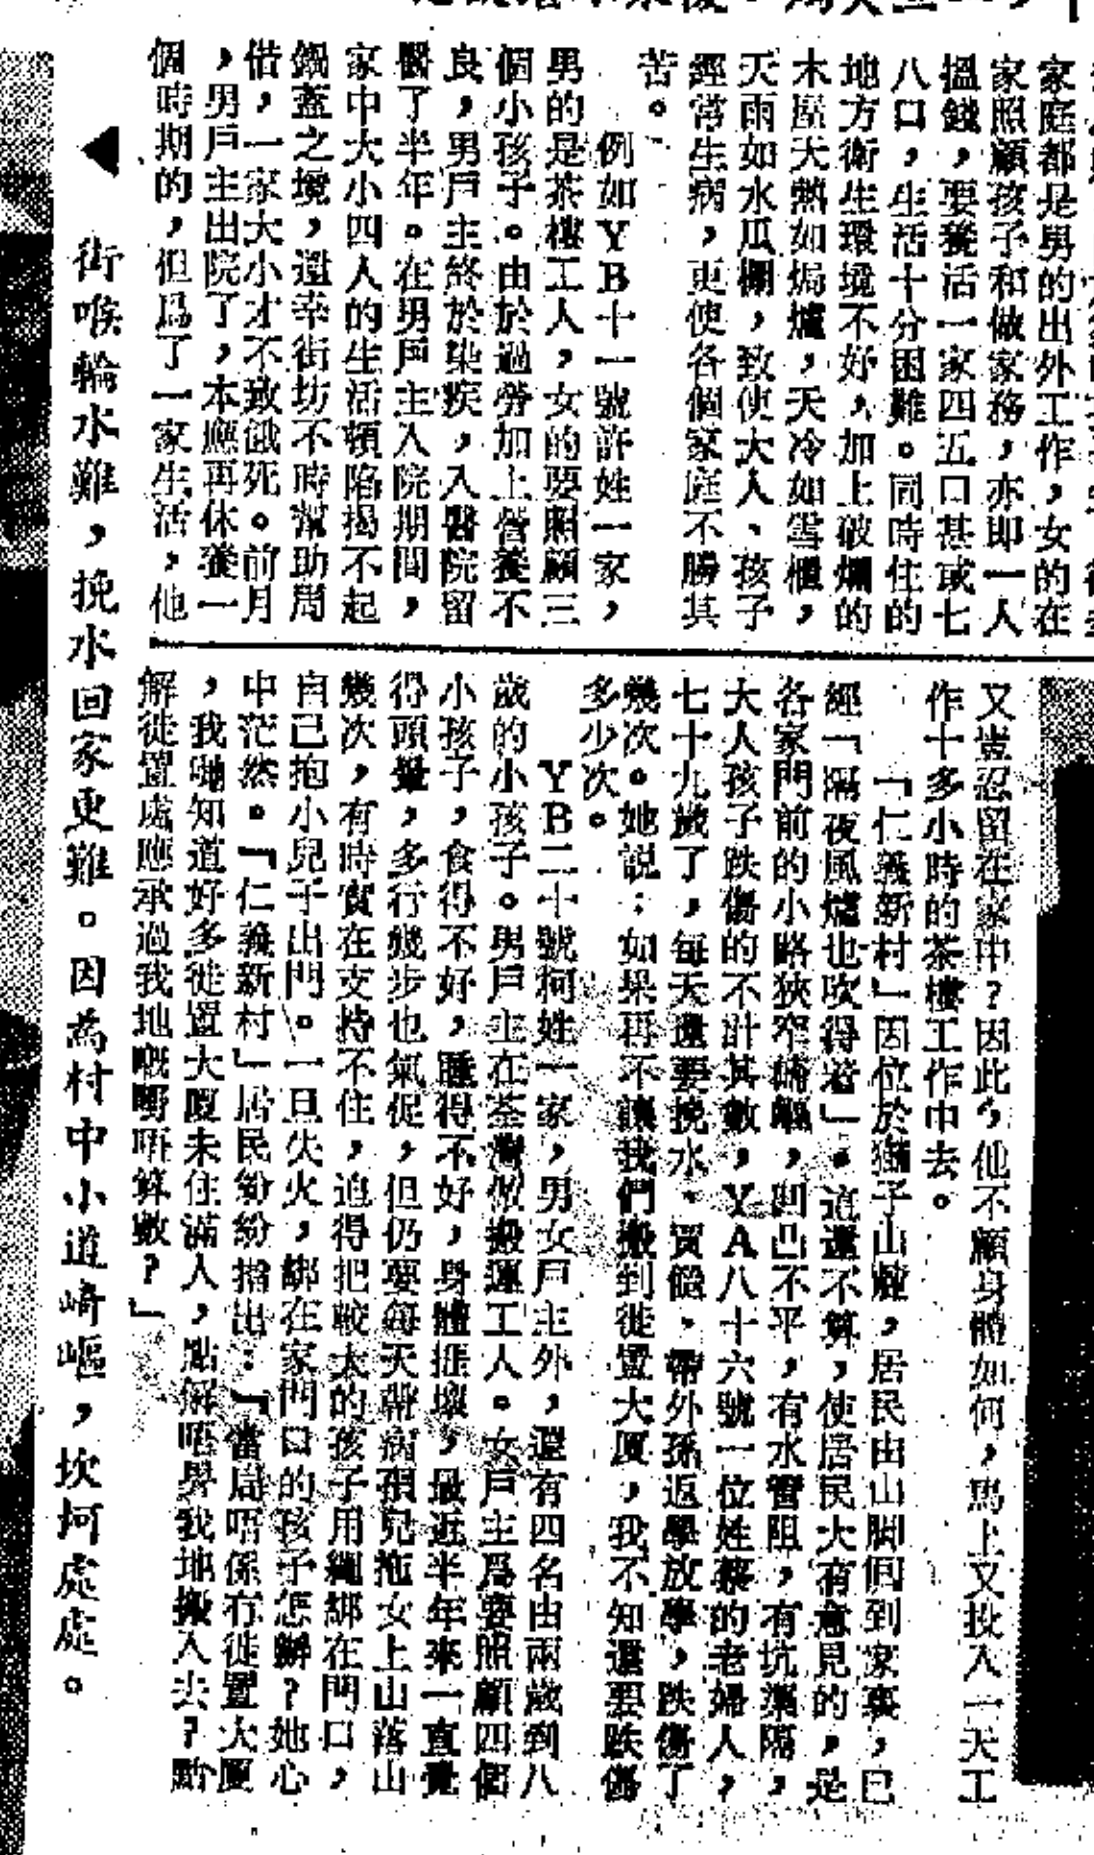 家庭都是男的出外工作，女的在
家照顧孩子和做家務，亦即一人
搵錢，要養活一家四五口甚或七
八口，生活十分困難。同時住的
地方衛生環境不好，加上破爛的
木屋天熱如焗爐，天冷如雪櫃，
天雨如水瓜棚，致使大人、孩子
經常生病，更使各個家庭不勝其
苦。
例如YB十一號許姓一家，
男的是茶樓工人，女的要照顧三
個小孩子。由於過勞加上營養不
良，男戶主終於染疾，入醫院留
醫了半年。在男戶主入院期間，
家中大小四人的生活頓陷揭不起
鍋蓋之境，還幸街坊不時幫助周
借，一家大小才不致餓死。前月
，男戶主出院了，本應再休養一
個時期的，但爲了一家生活，他
又豈忍留在家中？因此，他不顧身體如何，馬上又投入一天工
作十多小時的茶樓工作中去。
「仁義新村」因位於獅子山麓，居民由山脚回到家裏，已
經「隔夜風爐也吹得着」。這還不算，使居民大有意見的，是
各家門前的小路狹窄崎嶇，凹凸不平，有水管阻，有坑渠隔，
大人孩子跌傷的不計其數，YA八十六號一位姓蔡的老婦人，
七十九歲了，每天還要挽水、買餸、帶外孫返學放學，跌傷了
幾次。她説：如果再不讓我們搬到徙置大厦，我不知還要跌傷
多少次。
YB二十號柯姓一家，男女戶主外，還有四名由兩歲到八
歲的小孩子。男戶主在荃灣做搬運工人。女戶主爲要照顧四個
小孩子，食得不好，睡得不好，身體捱壞，最近半年來一直覺
得頭暈，多行幾步也氣促，但仍要每天帶病孭兒拖女上山落山
幾次，有時實在支持不住，迫得把較大的孩子用繩綁在門口，
自己抱小兒子出門。一旦失火，綁在家門口的孩子怎辦？她心
中茫然。「仁義新村」居民紛紛指出：「當局唔係冇徙置大厦
，我哋知道好多徙置大厦未住滿人，點解唔畀我地搬入去？點
解徙置處應承過我地嘅嘢唔算數？」
◀ 街喉輪水難，挽水回家更難。因為村中小道崎嶇，坎坷處處。